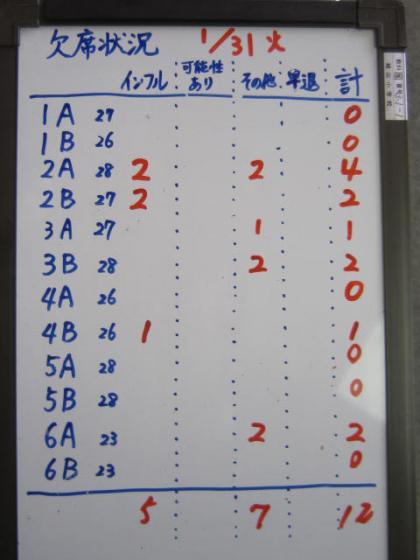 欠席状況 1/31 火
インフル 可能性あり その他 早退 計
1A 27 0
1B 26 0
2A 28 2 2 4
2B 27 2 2
3A 27 1 1
3B 28 2 2
4A 26 0
4B 26 1 1
5A 28 0
5B 28 0
6A 23 2 2
6B 23 0
5 7 12